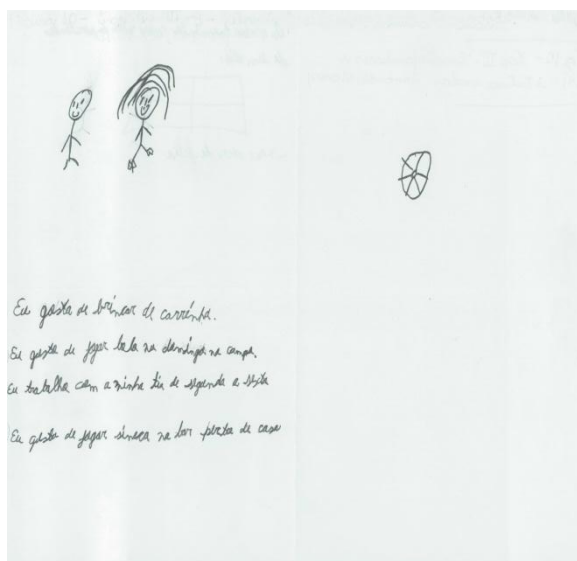 Eu gosta de brincar de carrinho.
Eu gosta de jogar bola na domingo na campo.
Eu trabalha com a minha tia de segunda a sexta
Eu gosta de jogar sinuca na bar perto de casa